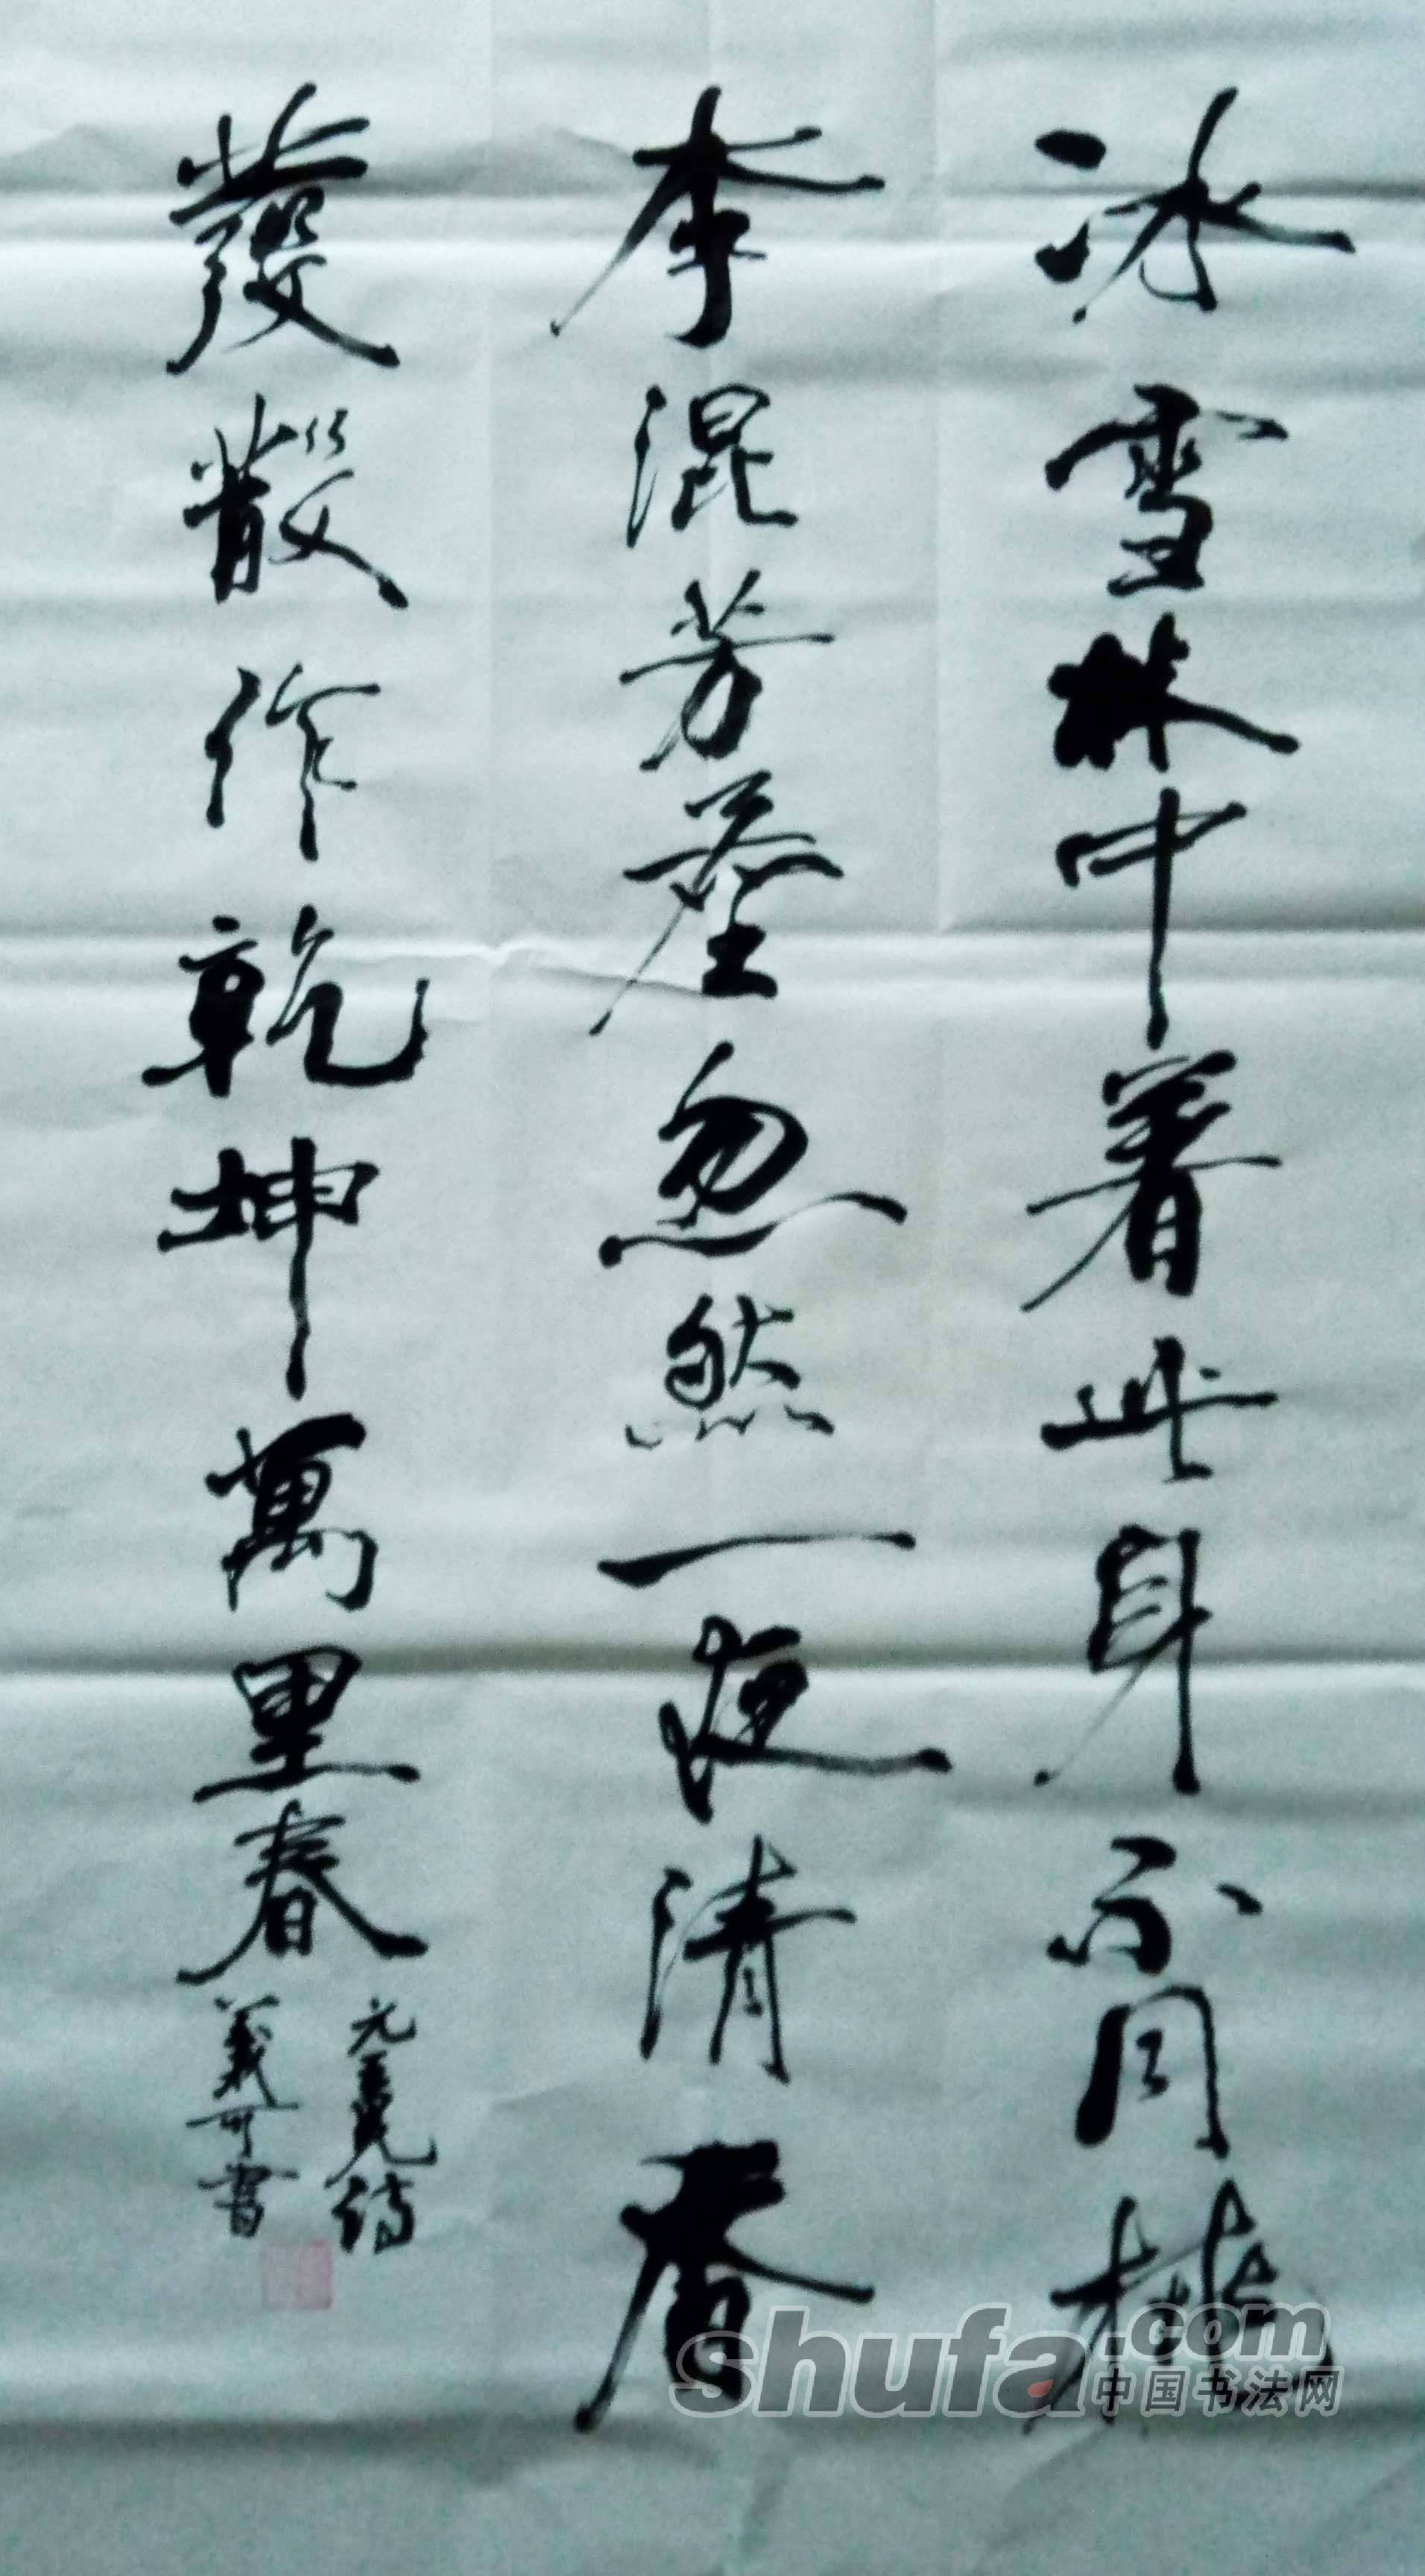 冰雪林中着此身不同桃
李混芳塵忽然一夜清香
發散作乾坤萬里春
元王冕詩
義可書
shufa.com
中国书法网